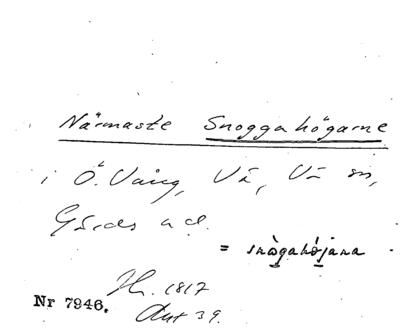 Närmaste Snoggahögarne
i Ö. Vång, Vä, Vä sn,
Gärds hd.
= snògahö̀jana
Hr. 1817
Nr 7946. Akt 39.